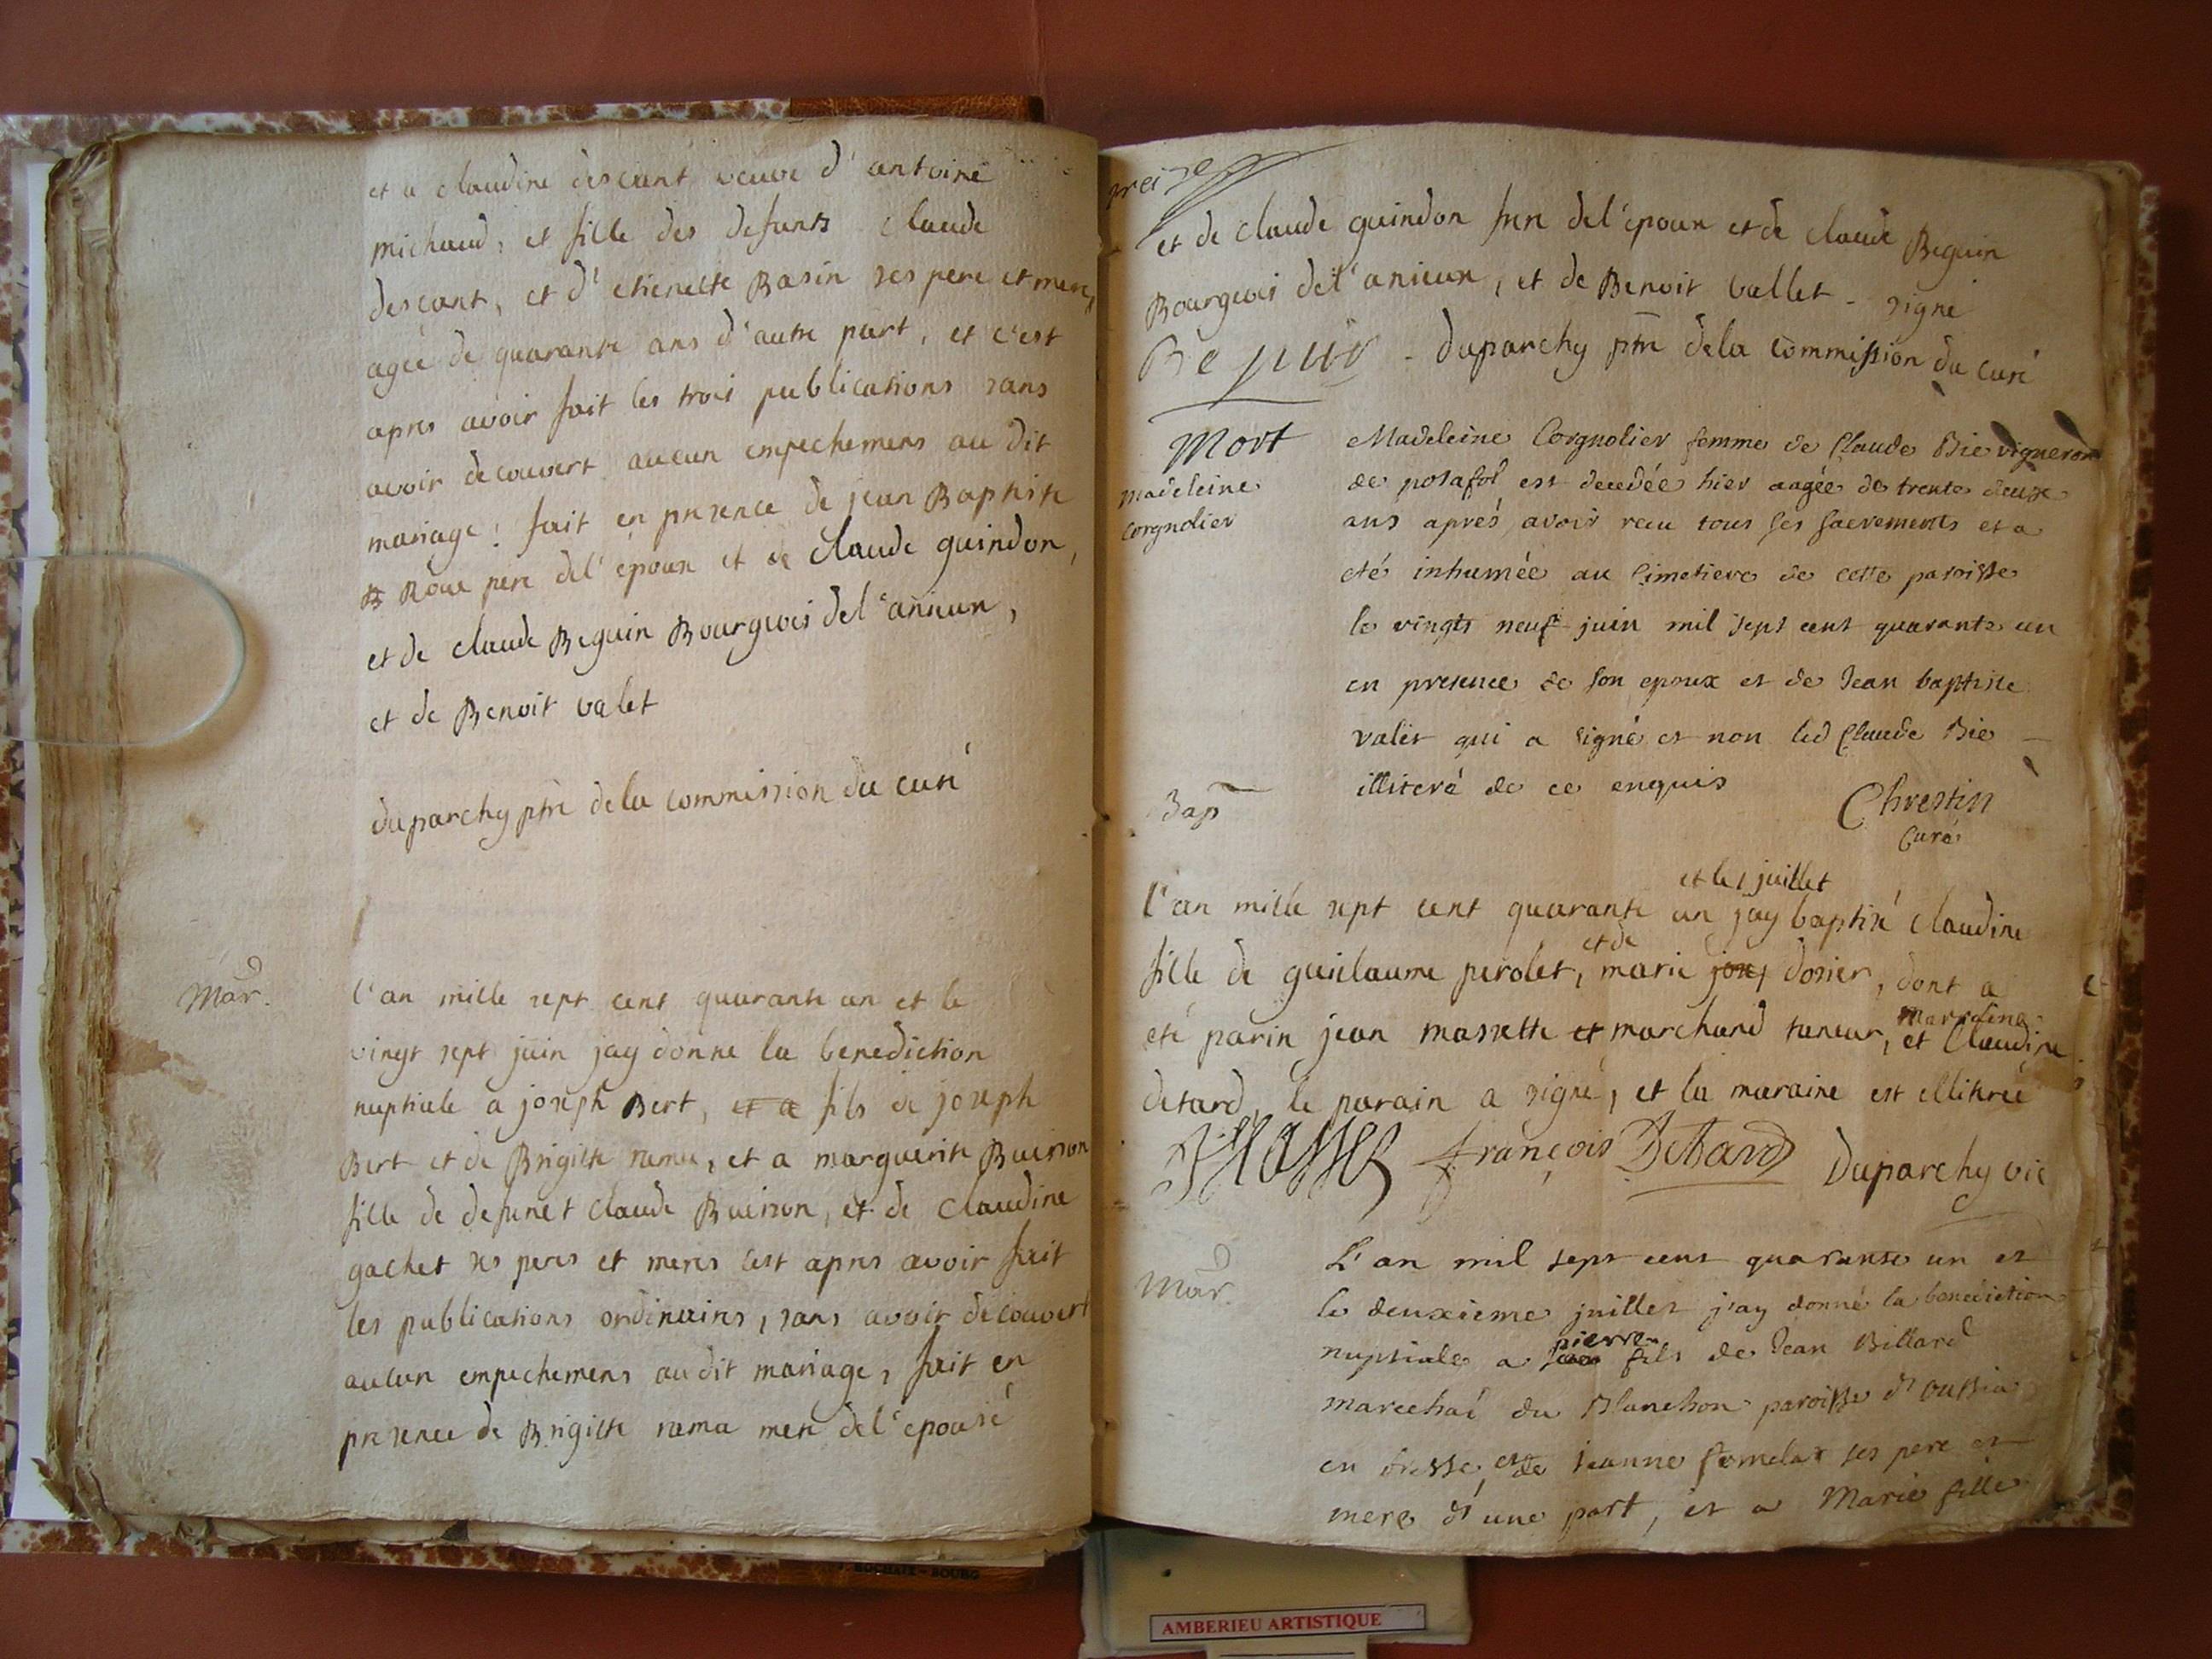 et a claudine descant veuve d'antoine
michaud, et fille des defunts claude
descant, et d'etienette Basin ses pere et mere,
agée de quarante ans d'autre part, et c'est
apres avoir fait les trois publications sans
avoir decouvert aucun empechemens au dit
mariage. fait en presence de jean Baptiste
Roux pere del'epoux et de claude guindon,
et de claude Beguin Bourgeois del'anieux,
et de Benoit valet
duparchy ptre dela commission du curé
Mar.
l'an mille sept cent quarante un et le
vingt sept juin jay donne la benediction
nuptiale a joseph Bert, et a fils de joseph
Bert et de Brigitte rama, et a marguerite Buisson
fille de defunct claude Buisson, et de claudine
gachet ses peres et meres c'est apres avoir fait
les publications ordinaires, sans avoir decouvert
aucun empechemens au dit mariage, fait en
presence de Brigitte rama mere del'epousé
treize
et de claude guindon del'epoux et de claude Beguin
Bourgeois del'anieux, et de Benoit vallet - signé
duparchy ptre dela commission du curé
Mort
madeleine
corgnolier
Madeleine Corgnolier femme de Claude Bie vigneron
de posafol est decedée hier aagée de trente deux
ans aprés avoir receu tous ses sacrements et a
eté inhumée au Cimetiere de cette paroisse
le vingts neuf juin mil sept cent quarante un
en presence de son epoux et de Jean baptiste
valet qui a signé et non led Claude Bie
illiteré de ce enquis
Chrestin
Curé
Bap
et le 1 juillet
l'an mille sept cent quarante un jay baptisé claudine
fille de guilaume perolet, et de marie dosier, dont a
eté parin jean massette et marchand taneur, marraine et Claudine
detard, le parain a signé, et la maraine est illitrée
J Masset françois Detard Duparchy vic
Mar
L'an mil sept cent quarante un et
le deuxieme juillet j'ay donné la benediction
nuptiale a pierre fils de Jean Billard
marechal du Blanchon paroisse d'oussia
en bresse, et de jeanne ses pere et
mere d'une part, et a Marie fille
AMBERIEU ARTISTIQUE